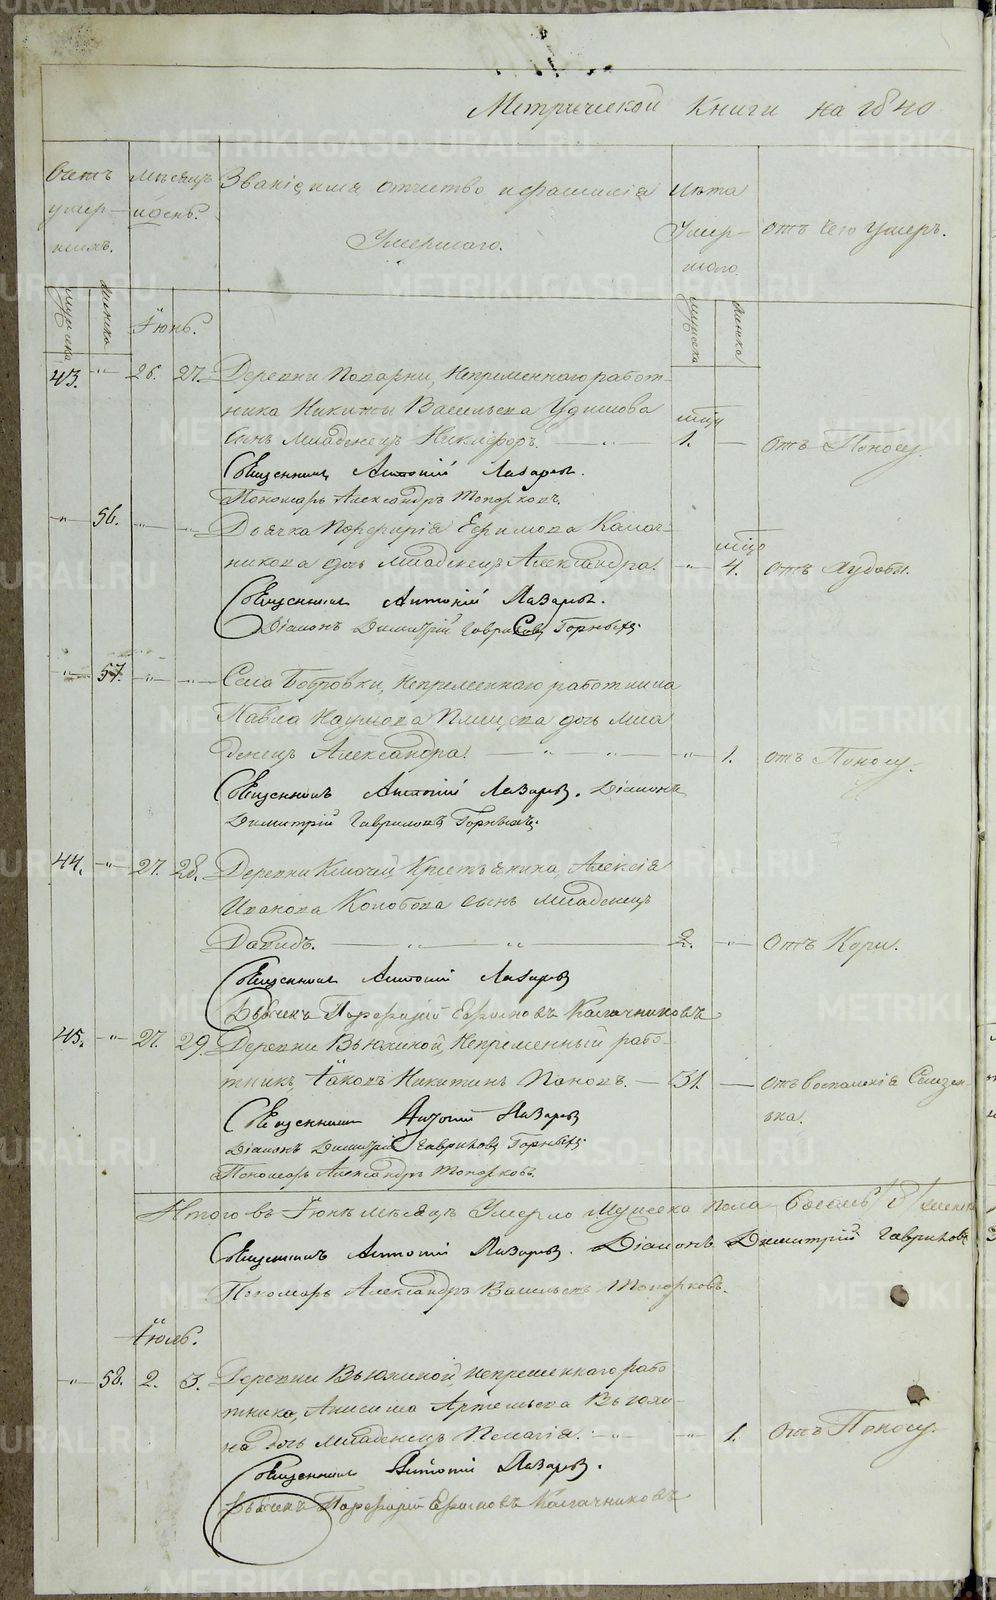 Метрической Книги на 1840
Счетъ умер- шихъ.
Мѣсяцъ и день.
Званіе, имя отчество и фамилія
Умершаго.
Лѣта Умер- шаго.
отъ чего умеръ.
мужска
женска
мужска
женска
Іюнь.
43. -"- 26. 27. Деревни Поварни, Непременнаго работ-
ника Никиты Васильева
сынъ младенецъ Никифоръ. 1. отъ Поносу.
Священникъ Антоній Лазаревъ.
Пономарь Александръ Топорковъ.
-"- 56. -"- -"- Дьячка Порфирія Ефимова Калач-
никова дочь младенецъ Александра. -"- 4. отъ Худобы.
Священникъ Антоній Лазаревъ.
Діаконъ Димитрій Гавриловъ Горныхъ.
-"- 57. -"- -"- Села Бобровки, Непременнаго работника
Павла Наумова дочь мла
денецъ Александра. -"- 1. отъ Поносу.
Священникъ Антоній Лазаревъ. Діаконъ
Димитрій Гавриловъ Горныхъ.
44. -"- 27. 28. Деревни Ключи Крестьянина, Алексія
Иванова Колобова сынъ младенецъ
Давидъ. 2. -"- отъ Кори.
Священникъ Антоній Лазаревъ
Дьячекъ Порфирій Ефимовъ Калачниковъ
45. -"- 27. 29. Деревни Вьюхиной, Непременный рабо-
тникъ Іаковъ Никитинъ Пановъ. 51. отъ воспаленія Селезен-
ка.
Священникъ Антоній Лазаревъ
Діаконъ Димитрій Гавриловъ Горныхъ
Пономарь Александръ Топорковъ.
Итого въ Іюнѣ мѣсяцѣ Умерло Мужеска пола восемь 8
Священникъ Антоній Лазаревъ. Діаконъ Димитрій Гавриловъ
Пономарь Александръ Васильевъ Топорковъ.
Іюль.
-"- 58. 2. 3. Деревни Вьюхиной непременнаго рабо
тника, Анисима Артемьева Вьюхи-
на дочь младенецъ Пелагія. -"- 1. отъ Поносу.
Священникъ Антоній Лазаревъ.
Дьячекъ Порфирій Ефимовъ Калачниковъ
METRIKI.GASO-URAL.RU